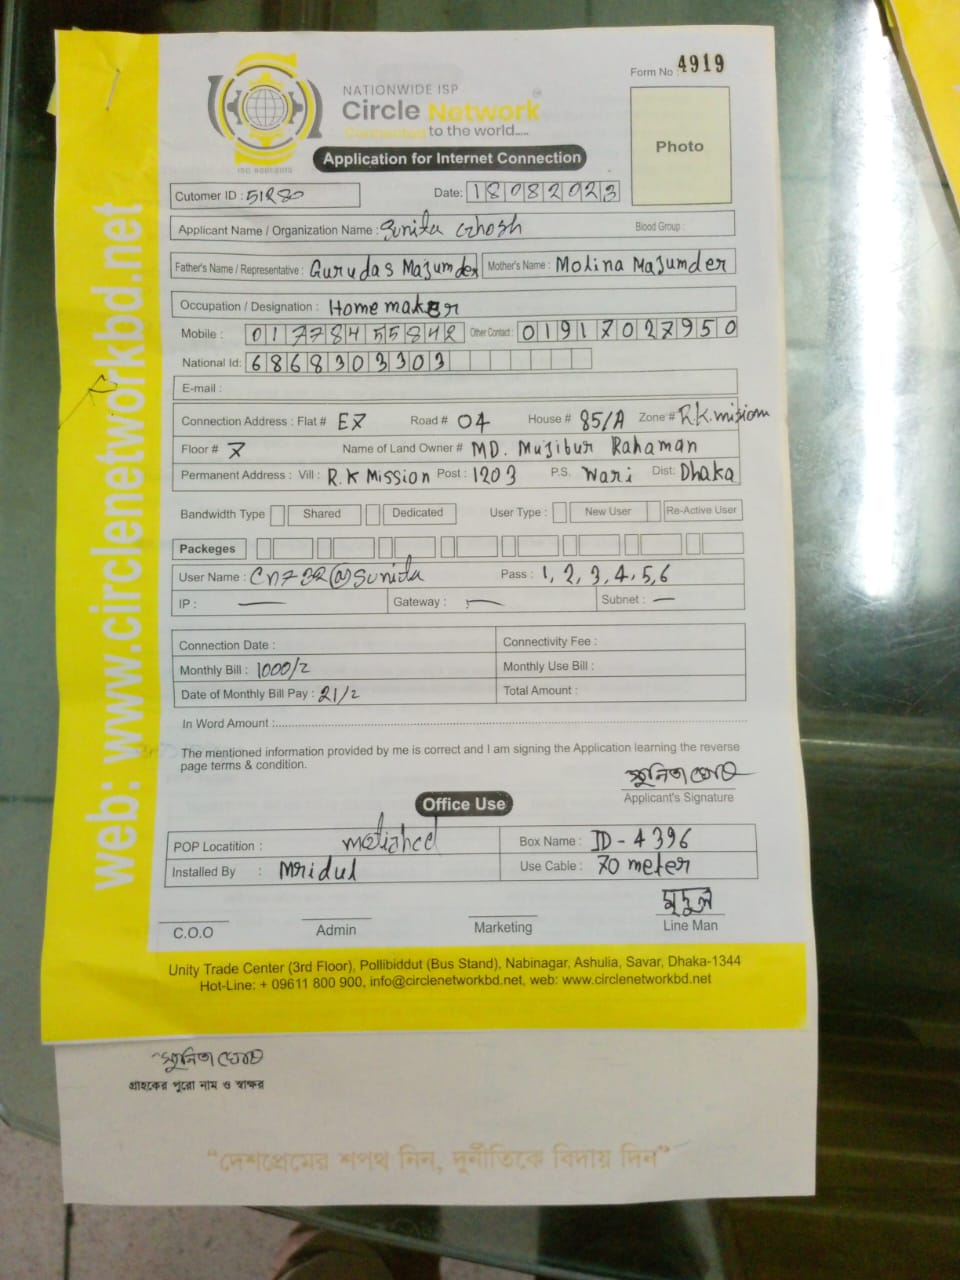 web: www.circlenetworkbd.net
Form No : 4919
NATIONWIDE ISP
Circle Network
Connected to the world.....
ISO 9001:2015
Application for Internet Connection
Photo
Cutomer ID :
Date: 18082023
Applicant Name / Organization Name : Sunita Ghosh Blood Group :
Father's Name / Representative : Gurudas Majumder Mother's Name : Molina Majumder
Occupation / Designation : Homemaker
Mobile : Other Contact :
National Id: 6868303303
E-mail :
Connection Address : Flat # E7 Road # 04 House # 85/A Zone # R.K. mision
Floor # 7 Name of Land Owner # MD. Mujibur Rahaman
Permanent Address : Vill : R.K Mission Post : 1203 P.S. Wari Dist: Dhaka
Bandwidth Type Shared Dedicated User Type : New User Re-Active User
Packeges
User Name : Pass : 1, 2, 3, 4, 5, 6
IP : — Gateway : — Subnet : —
Connection Date : Connectivity Fee :
Monthly Bill : 1000/2 Monthly Use Bill :
Date of Monthly Bill Pay : 21/2 Total Amount :
In Word Amount :
The mentioned information provided by me is correct and I am signing the Application learning the reverse
page terms & condition.
সুনিতা ঘোষ
Applicant's Signature
Office Use
POP Locatition : Box Name : ID-4396
Installed By : Mridul Use Cable : 70 meter
মৃদুল
C.O.O Admin Marketing Line Man
Unity Trade Center (3rd Floor), Pollibiddut (Bus Stand), Nabinagar, Ashulia, Savar, Dhaka-1344
Hot-Line: + 09611 800 900, info@circlenetworkbd.net, web: www.circlenetworkbd.net
সুনিতা ঘোষ
গ্রাহকের পুরো নাম ও স্বাক্ষর
“দেশপ্রেমের শপথ নিন, দুর্নীতিকে বিদায় দিন”